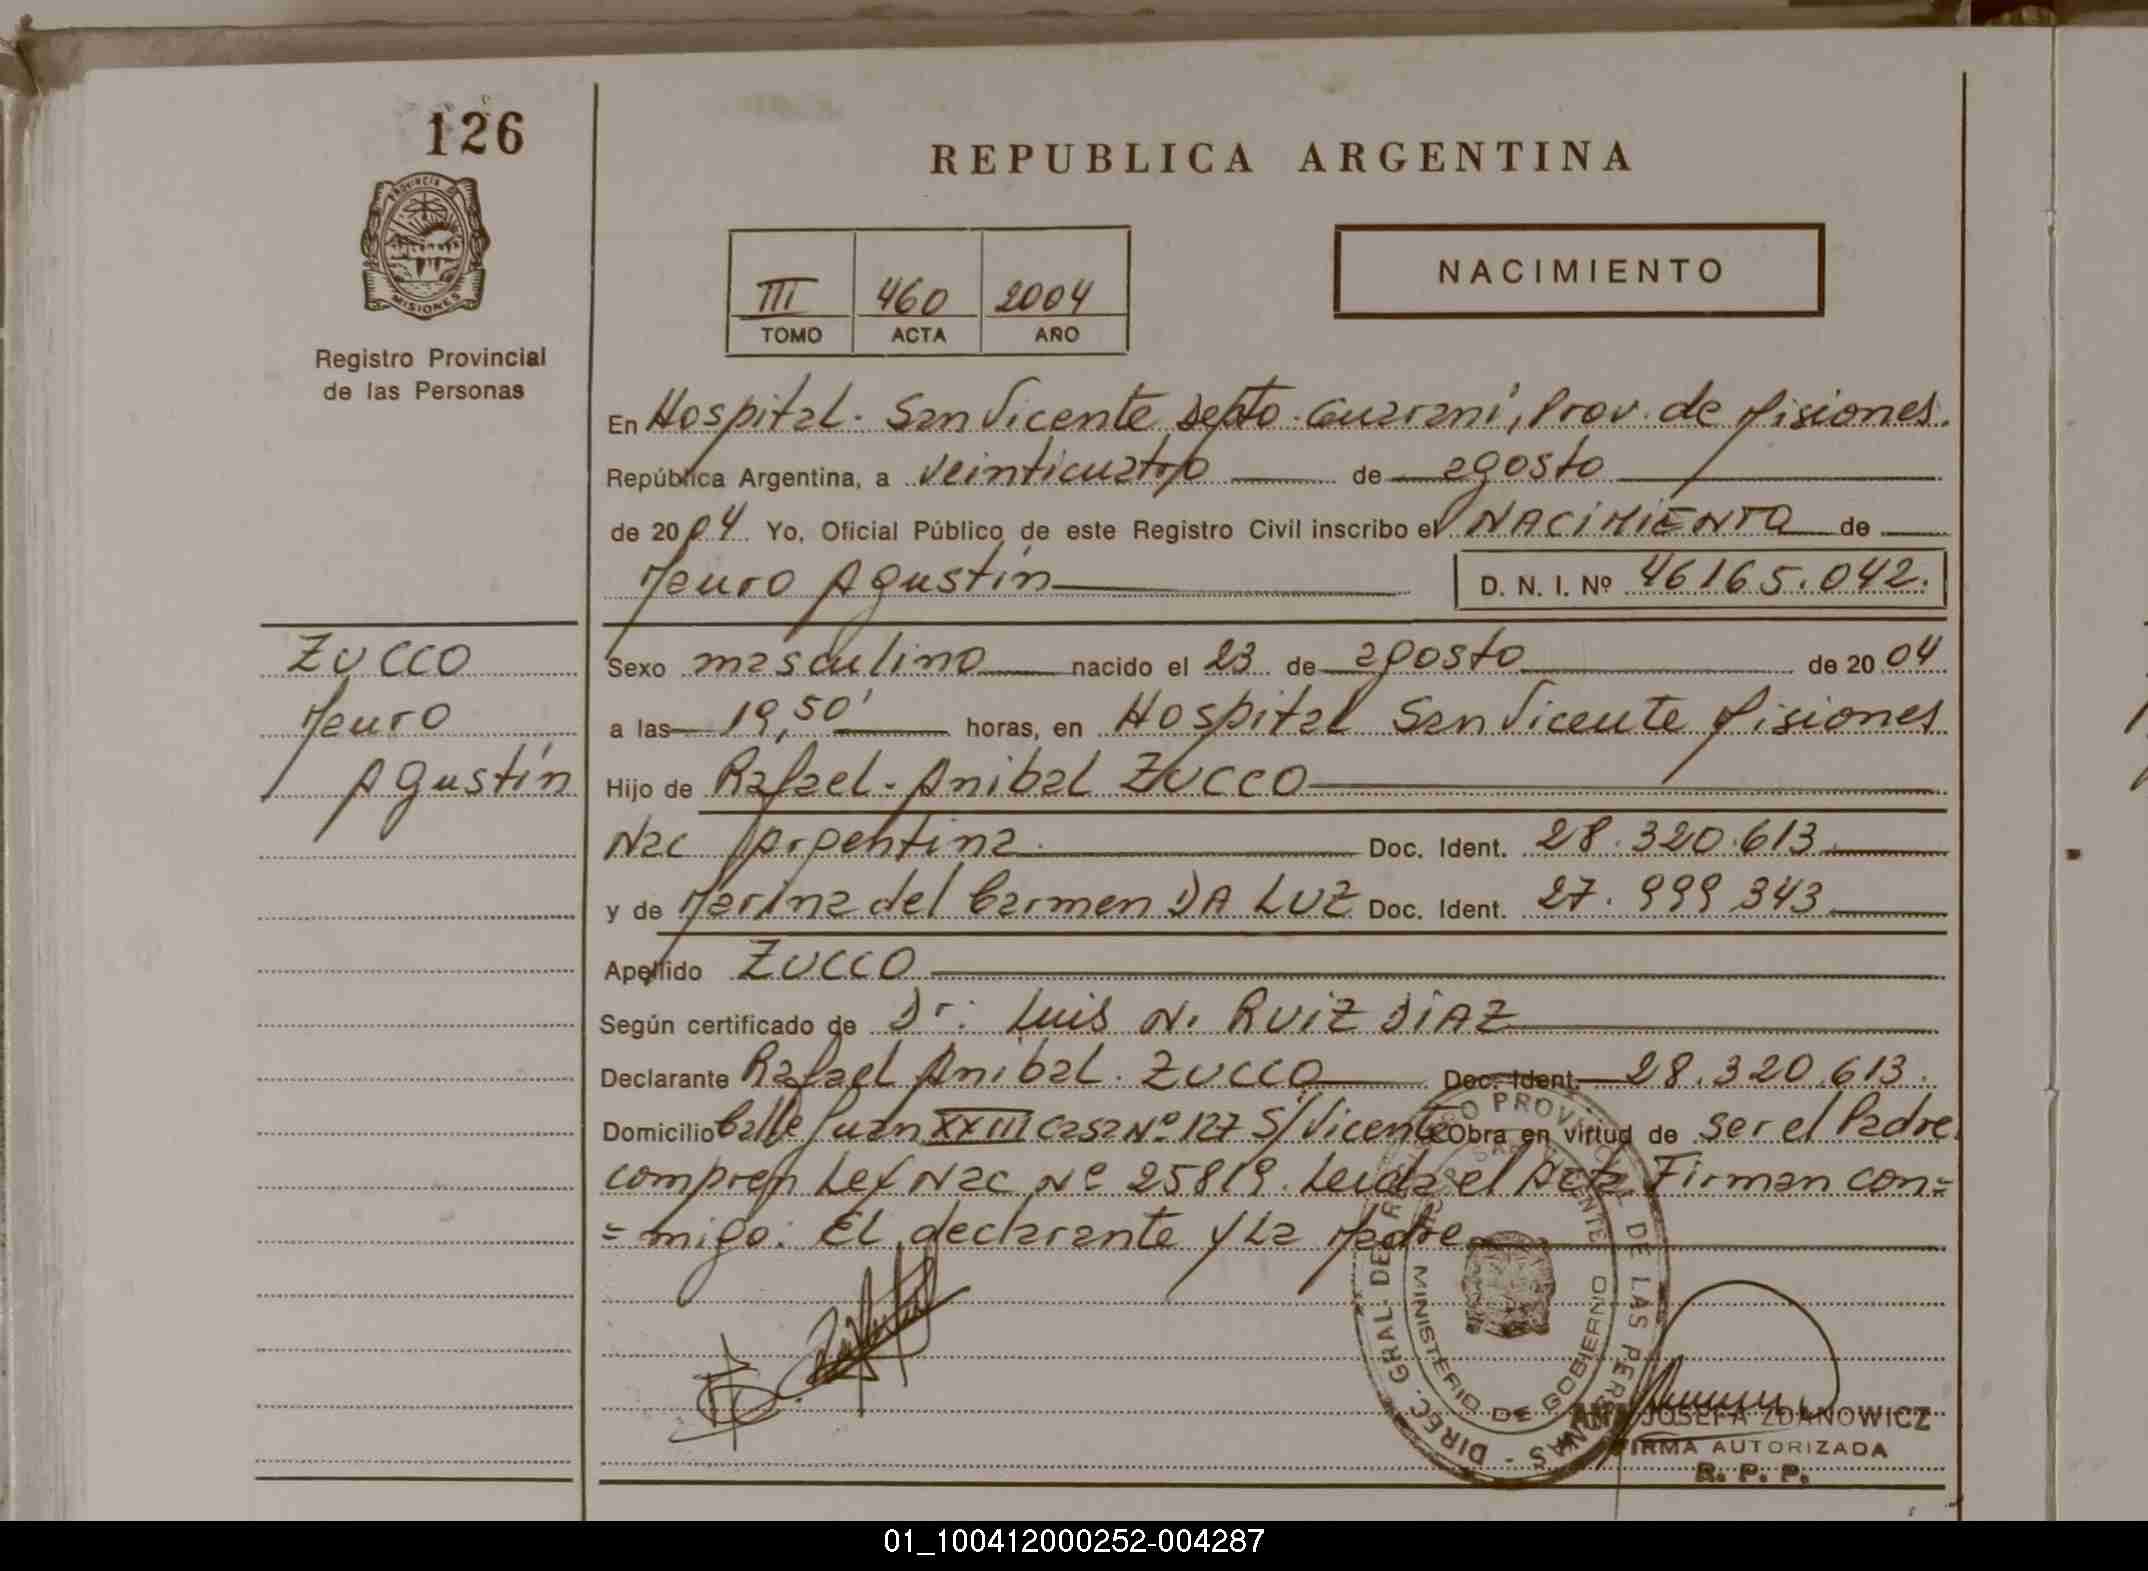 126
PROVINCIA DE
MISIONES
Registro Provincial
de las Personas
REPUBLICA ARGENTINA
III 460 2004
TOMO ACTA AÑO
NACIMIENTO
En Hospital - San Vicente Depto. Guarani, Prov. de Misiones.
República Argentina, a veinticuatro de agosto
de 2004 Yo, Oficial Público de este Registro Civil inscribo el NACIMIENTO de
Mauro Agustín D. N. I. Nº 46165.042.
ZUCCO
Mauro
Agustín
Sexo masculino nacido el 23 de agosto de 2004
a las 19,50' horas, en Hospital San Vicente Misiones
Hijo de Rafael - Anibal ZUCCO
Nac Argentina Doc. Ident. 28.320.613
y de Marina del Carmen DA LUZ Doc. Ident. 27.999.343
Apellido ZUCCO
Según certificado de Dr: Luis N. RUIZ DIAZ
Declarante Rafael Anibal. ZUCCO Doc. Ident. 28.320.613.
Domicilio Calle Juan XXIII Casa Nº 127 S/Vicente Obra en virtud de ser el Padre
compren Ley Nac Nº 25819. Leida el Acta Firman con=
=migo: El declarante y La Madre
DIREC. GRAL. DE REGISTRO PROVINCIAL DE LAS PERSONAS -
MINISTERIO DE GOBIERNO
ANA JOSEFA ZDANOWICZ
FIRMA AUTORIZADA
R. P. P.
01_100412000252-004287